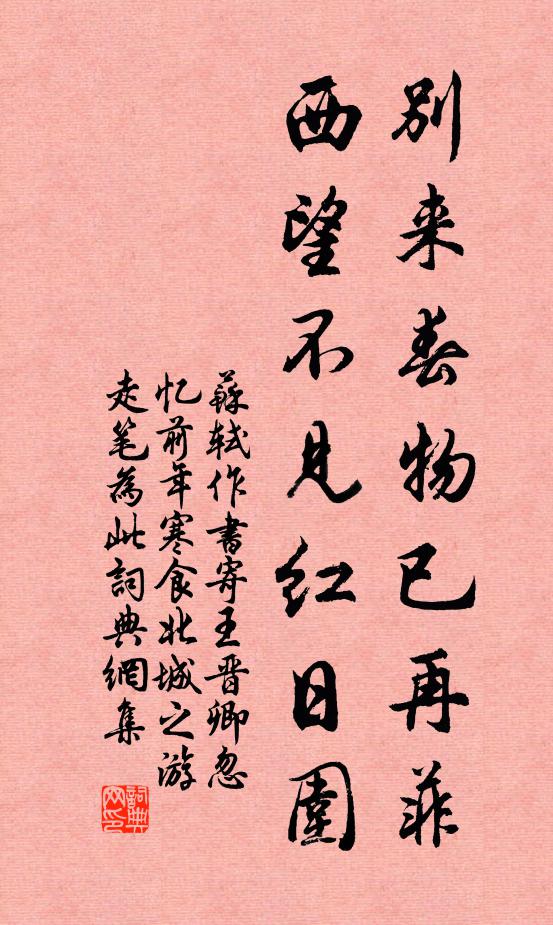 別来春物已再菲
西望不見紅日圍
蘇軾作書寄王晋卿忽
忆前年寒食北城之游
走笔為此詞典網集
詞典网印